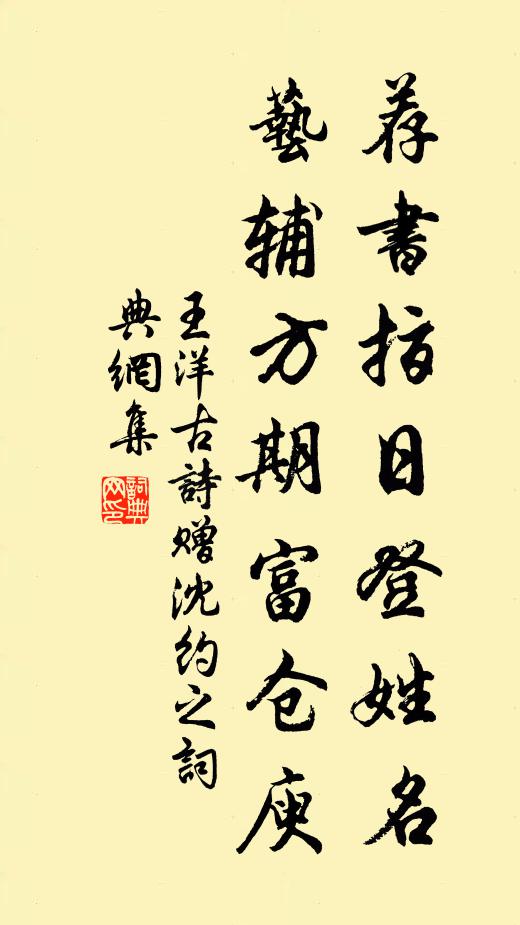 荐書指日登姓名
藝辅方期富仓庾
王洋古詩贈沈約之詞
典網集
詞典網印